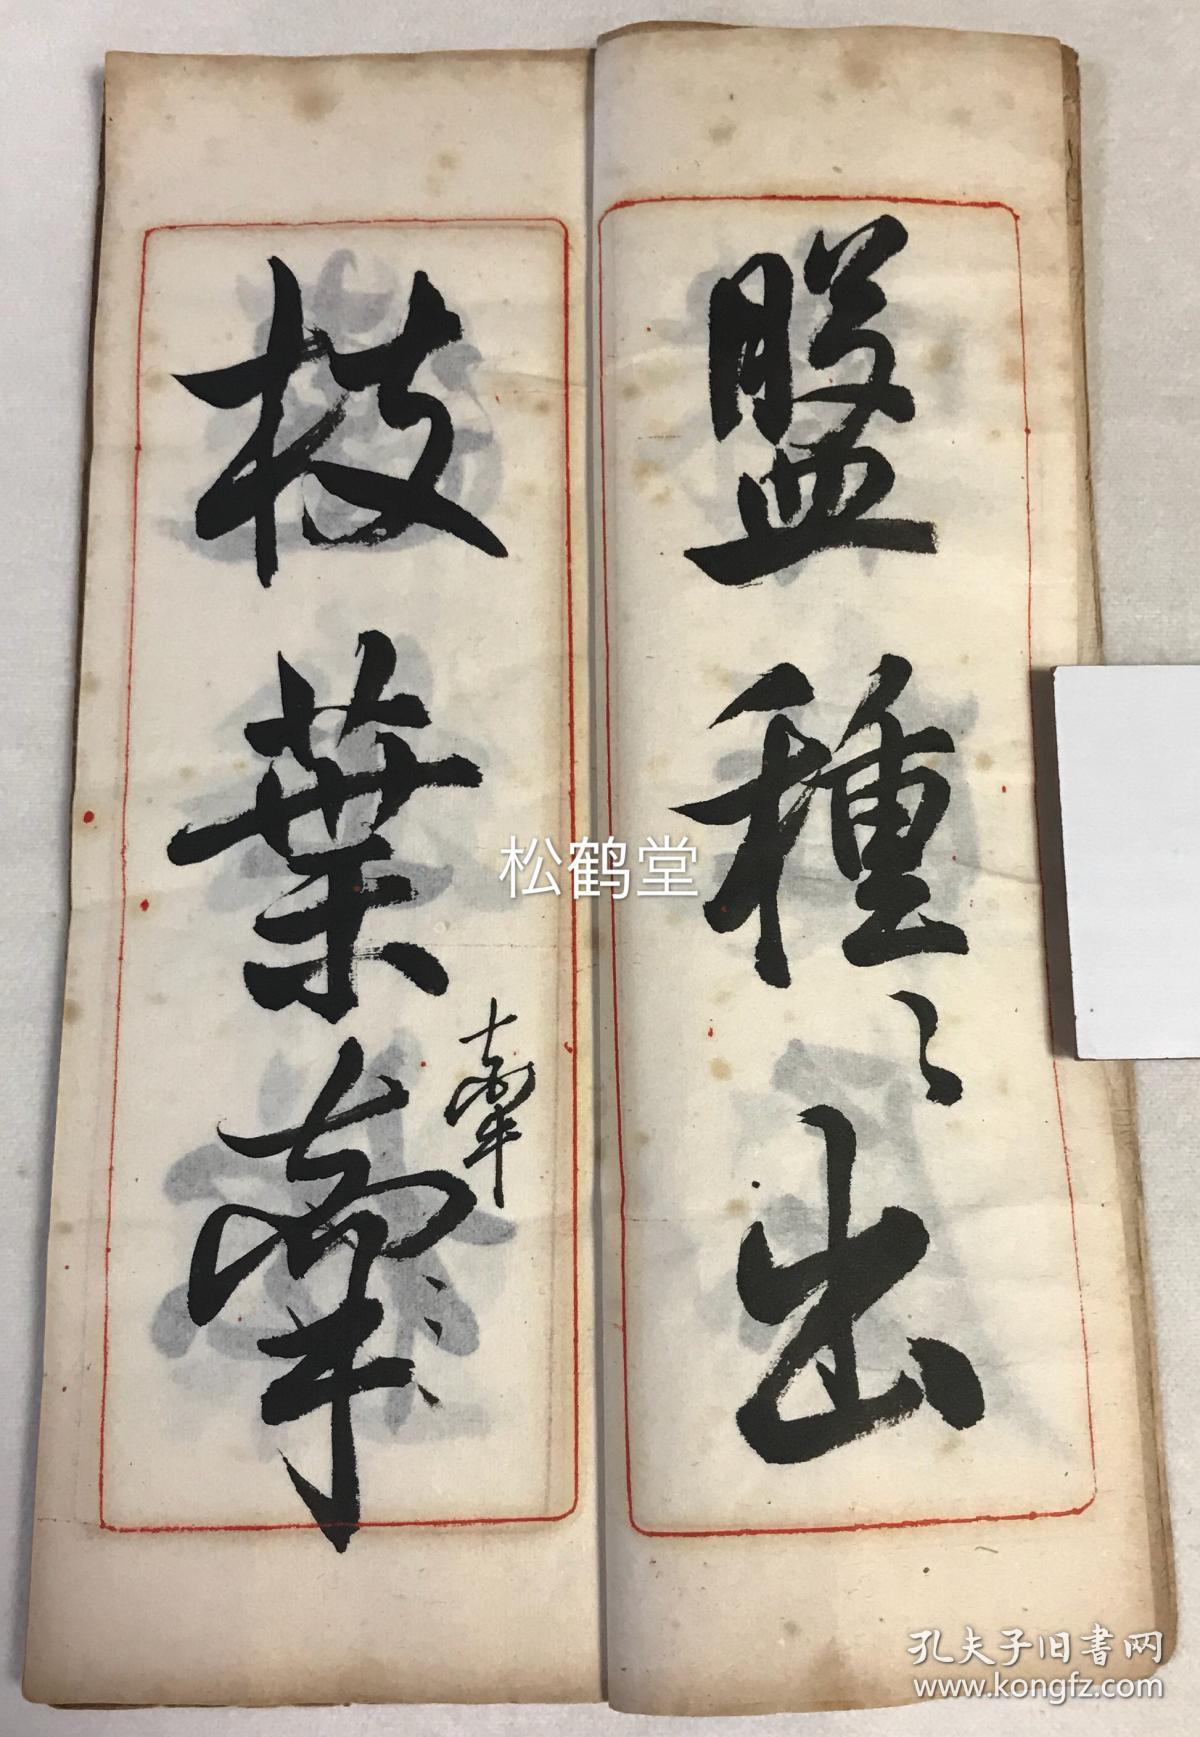 盤種〻出
枝葉牽
牽
松鹤堂
孔夫子旧書网
www.kongfz.com